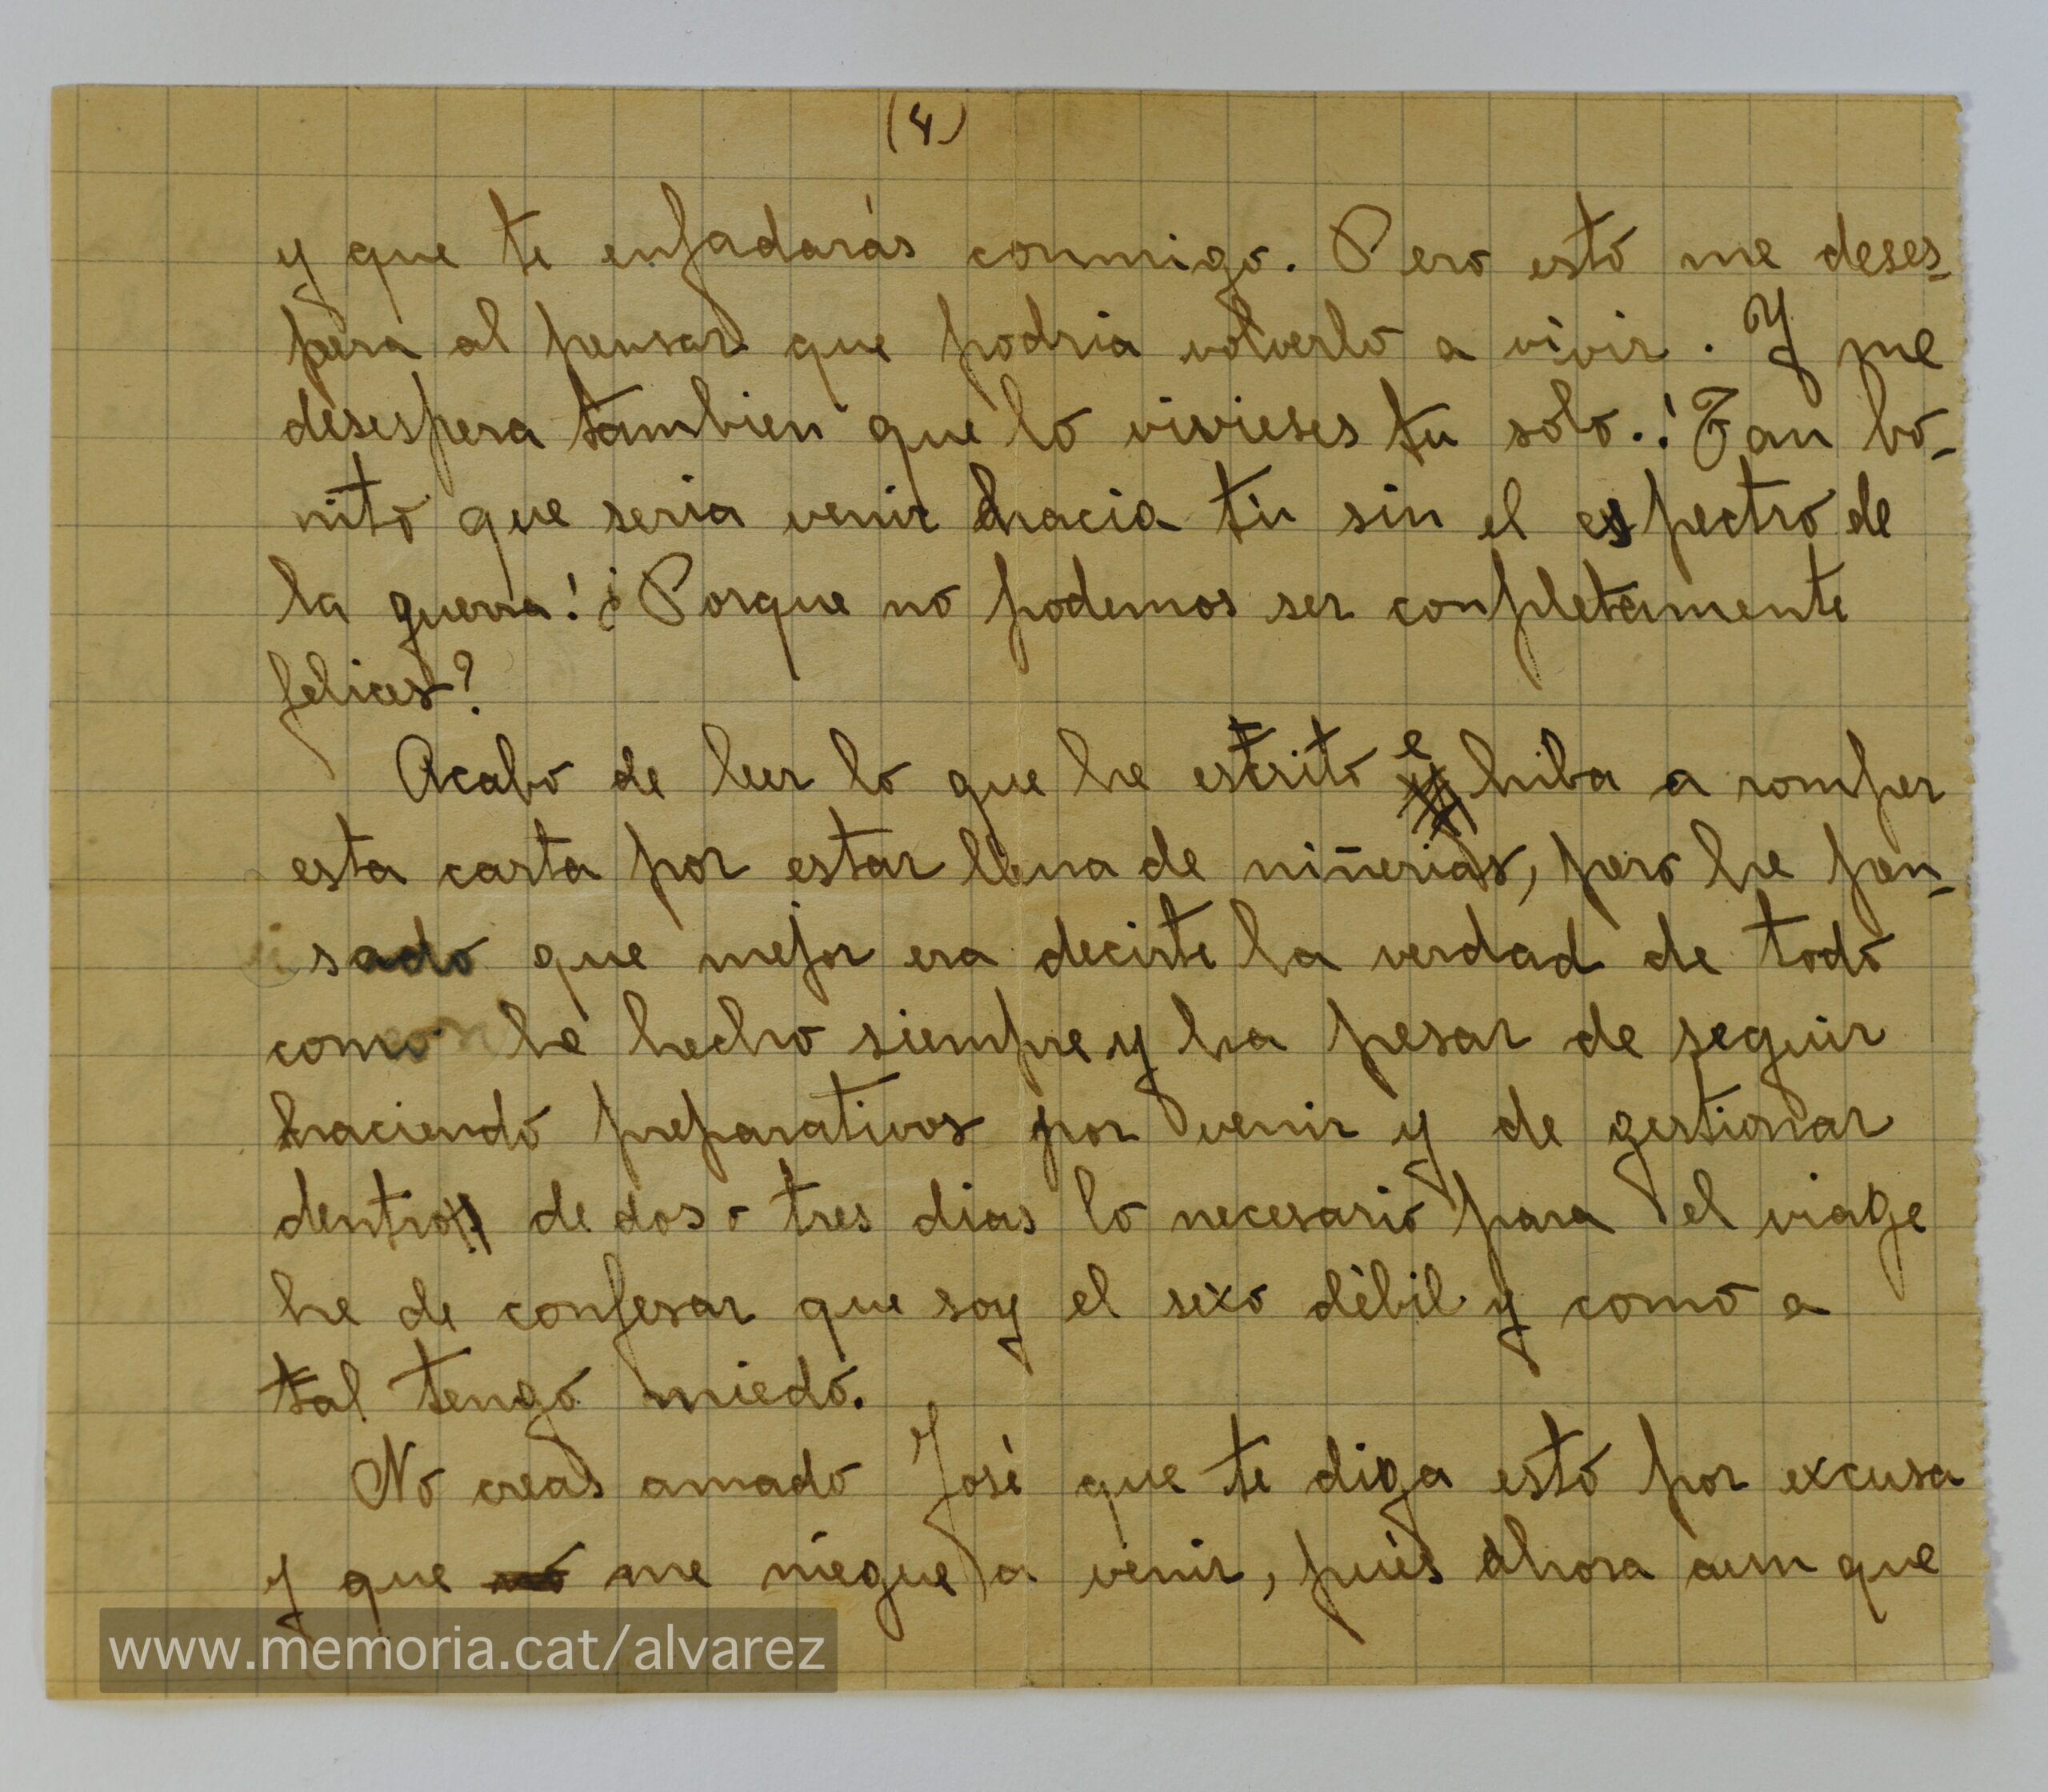 (4)
y que te enfadarás conmigo. Pero esto me deses-
pera al pensar que podria volverlo a vivir. Y me
desespera tambien que lo vivieses tu solo. ! Tan bo-
nito que seria venir hacia tú sin el espectro de
la guerra! ¿Porque no podemos ser conpletamente
felices?
Acabo de leer lo que he escrito e hiba a romper
esta carta por estar llena de niñerias, pero he pen-
sado que mejor era decirte la verdad de todo
como he hecho siempre y ha pesar de seguir
haciendo preparativos por venir y de gestionar
dentro de dos o tres dias lo necesario para el viage
he de confesar que soy el sexo débil y como a
tal tengo miedo.
No creas amado José que te diga esto por excusa
y que no me niegue a venir, pués ahora aun que
www.memoria.cat/alvarez